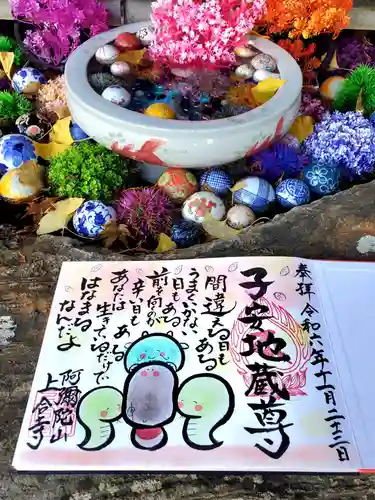 奉拝 令和六年十一月二十三日
子安地蔵尊
間違える日もある
うまくいかない
日もある
前を向くのが
辛い日もある
あなたは生きているだけで
はなまる
なんだよ
阿彌陀山
上 寺